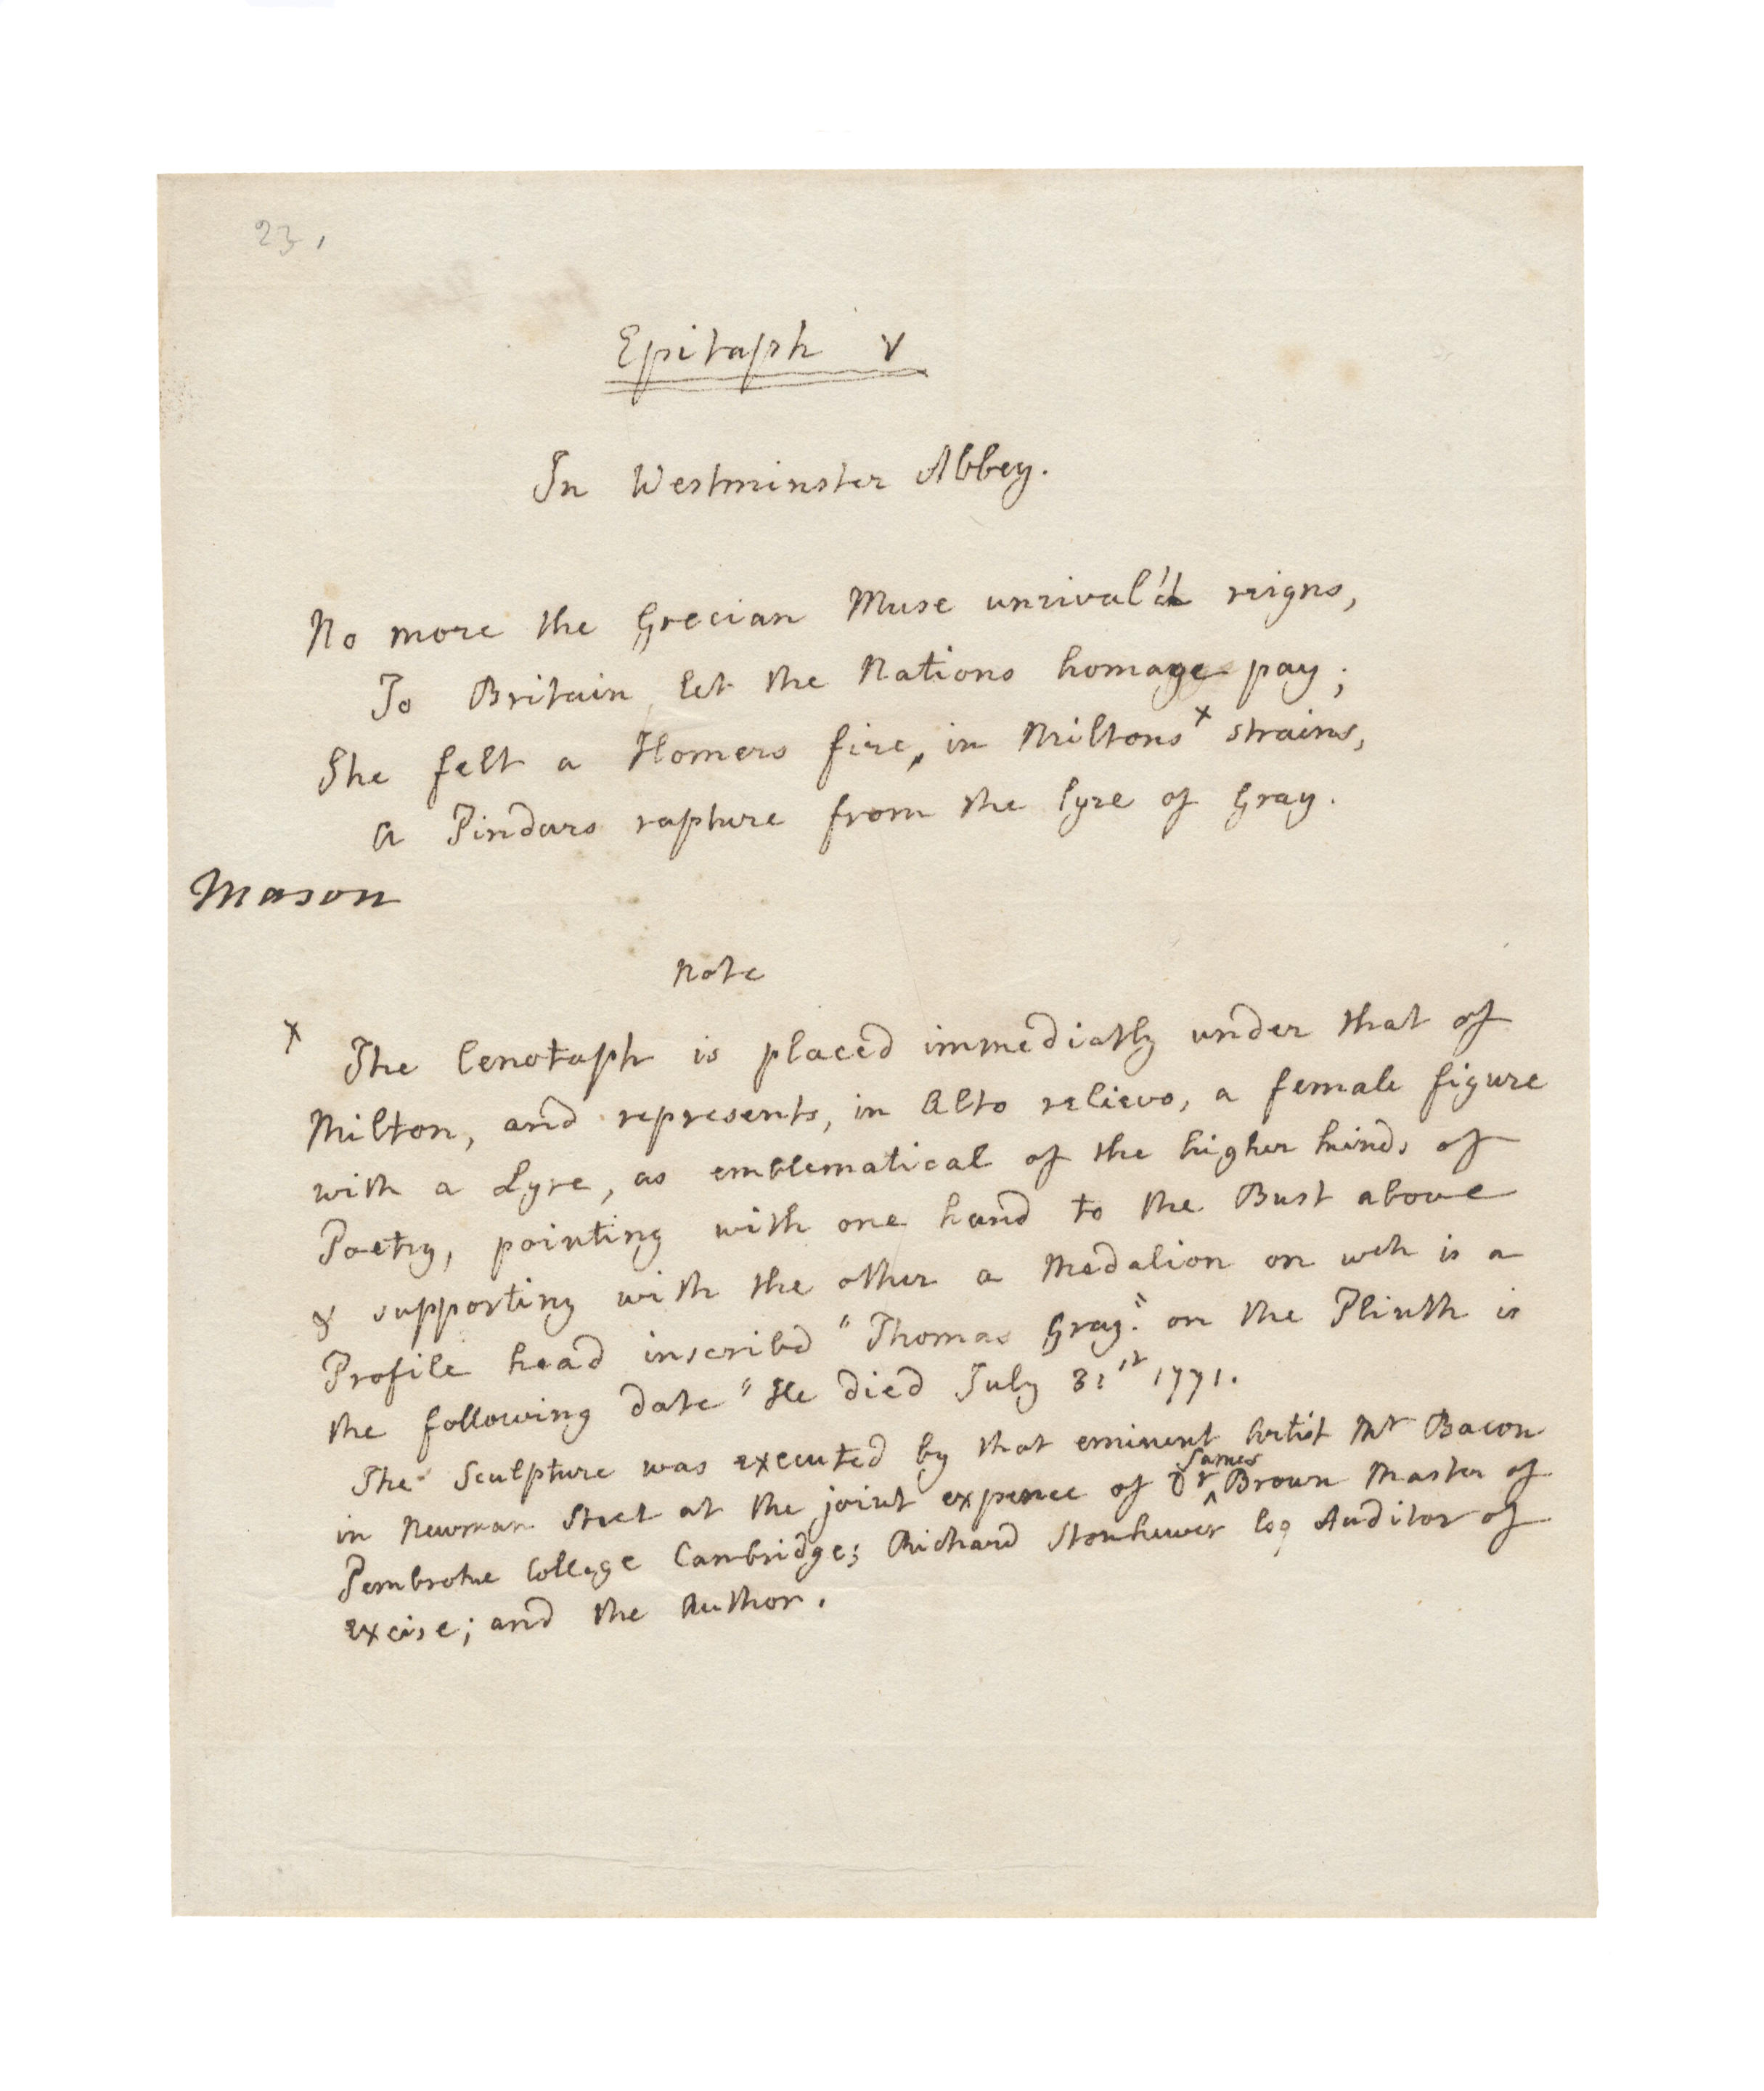 23,
Epitaph V
In Westminster Abbey.
No more the Grecian Muse unrival'd reigns,
To Britain let the Nations homage pay;
She felt a Homers fire, in Miltons x strains,
A Pindars rapture from the lyre of Gray.
Mason
Note
x The Cenotaph is placed immediatly under that of
Milton, and represents, in Alto relievo, a female figure
with a Lyre, as emblematical of the higher kinds of
Poetry, pointing with one hand to the Bust above
& supporting with the other a Medalion on wch is a
Profile head inscribd "Thomas Gray." on the Plinth is
the following date "He died July 31st 1771.
The Sculpture was executed by that eminent Artist Mr Bacon
in Newman Street at the joint expence of Dr James Brown Master of
Pembroke College Cambridge; Richard Stonhewer Esq Auditor of
excise; and the Author.